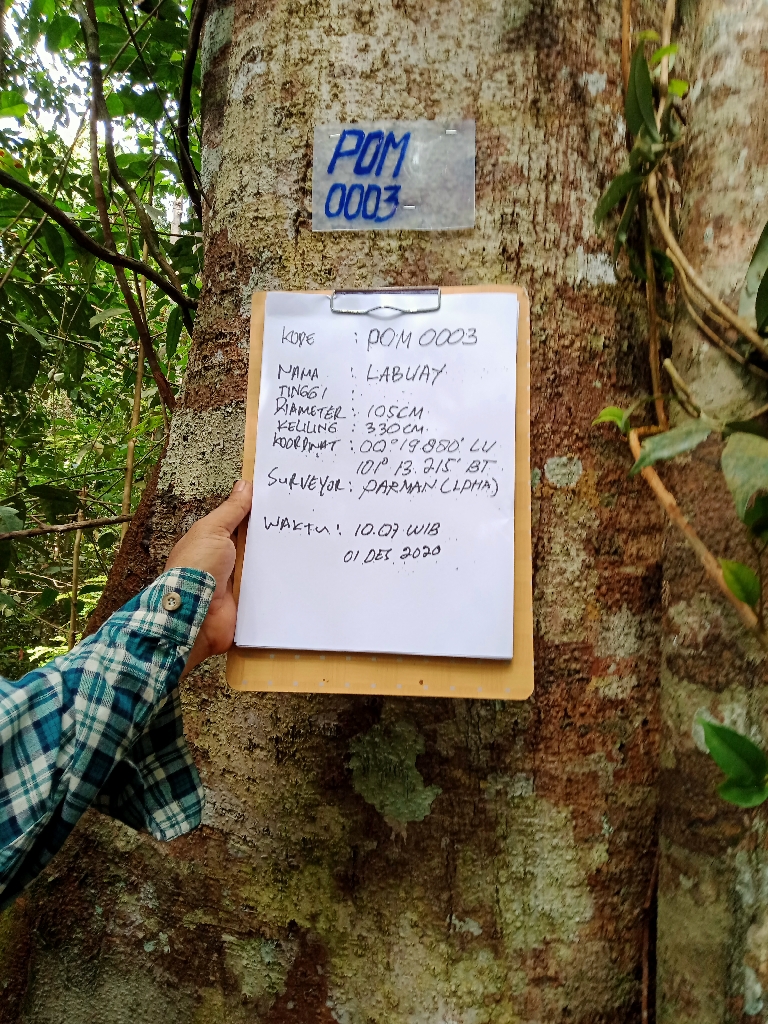 POM
0003
KODE : POM 0003
NAMA : LABUAY
TINGGI :
DIAMETER : 105CM
KELILING : 330CM
KOORDINAT : 00° 19.880' LU
101° 13.215' BT
SURVEYOR : PARMAN (LPHA)
WAKTU : 10.07 WIB
01 DES 2020